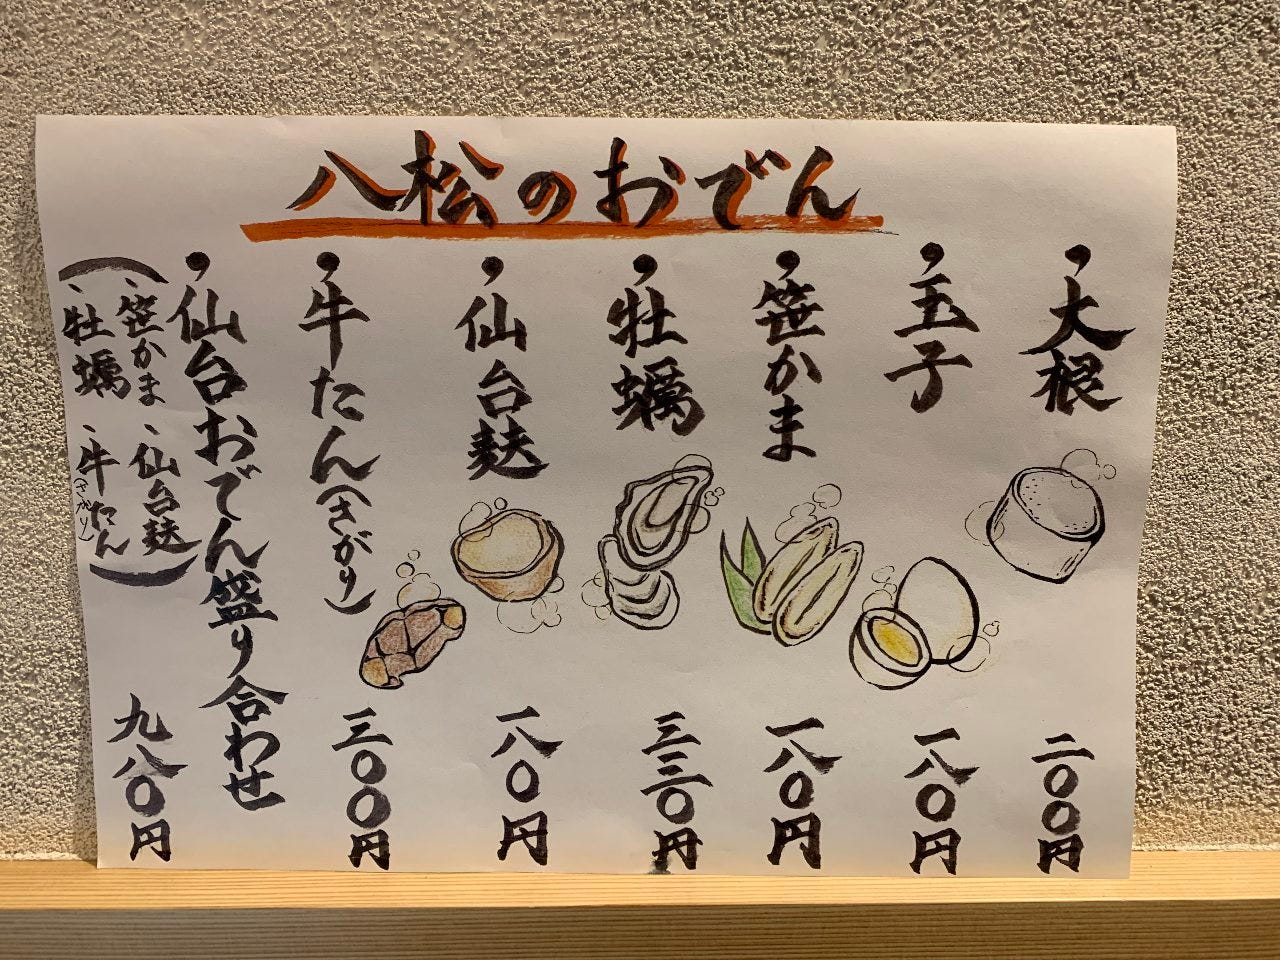 八松のおでん
・大根
二〇〇円
・玉子
一八〇円
・笹かま
一八〇円
・牡蠣
三三〇円
・仙台麸
一八〇円
・牛たん(さがり)
三〇〇円
・仙台おでん盛り合わせ
(、笹かま、仙台麸
、牡蠣、牛たん(さがり))
九八〇円